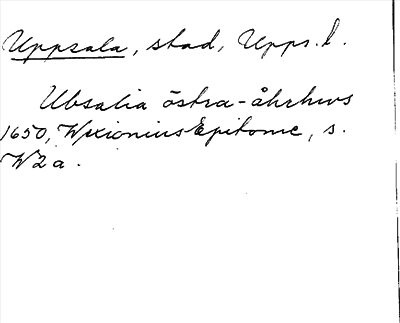 Uppsala, stad, Upps. l.
Ubsalia östra-åhrhws
1650, Wexionius Epitome, s.
W2a.